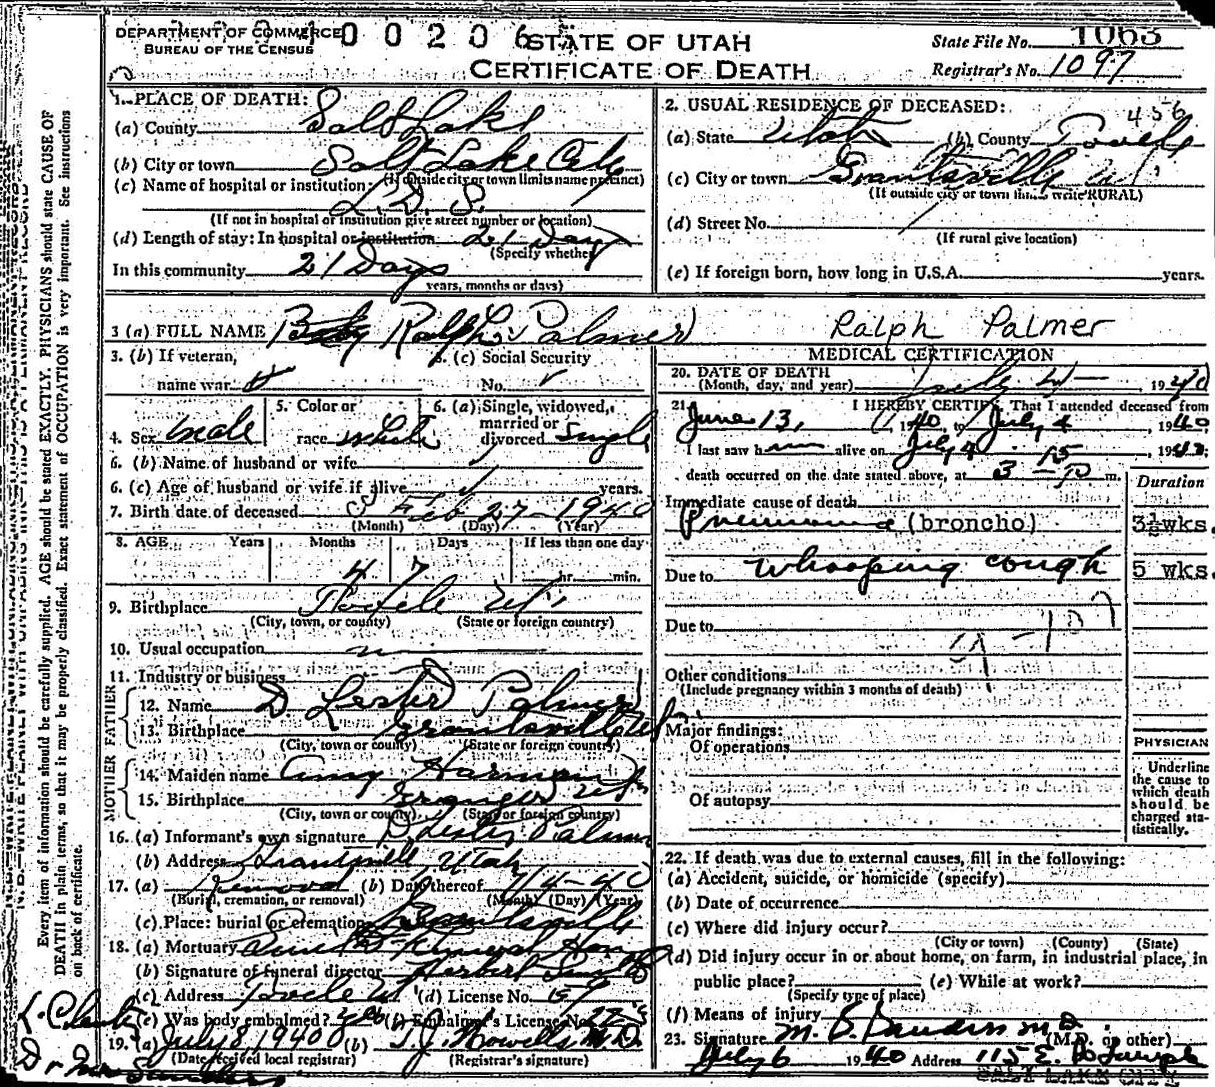 DEPARTMENT OF COMMERCE
BUREAU OF THE CENSUS
STATE OF UTAH
CERTIFICATE OF DEATH
State File No. 1063
Registrar's No. 1097
1. PLACE OF DEATH:
(a) County Salt Lake
(b) City or town Salt Lake City
(If outside city or town limits name precinct)
(c) Name of hospital or institution:
L. D. S.
(If not in hospital or institution give street number or location)
(d) Length of stay: In hospital or institution 21 Days
(Specify whether
In this community 21 Days
years, months or days)
2. USUAL RESIDENCE OF DECEASED:
456
(a) State Utah (b) County Tooele
(c) City or town Grantsville
(If outside city or town limits write RURAL)
(d) Street No.
(If rural give location)
(e) If foreign born, how long in U.S.A. years.
3 (a) FULL NAME Ralph Palmer
Ralph Palmer
3. (b) If veteran,
name war
3. (c) Social Security
No.
4. Sex male
5. Color or
race white
6. (a) Single, widowed,
married or
divorced Single
6. (b) Name of husband or wife
6. (c) Age of husband or wife if alive years.
7. Birth date of deceased Feb 27 - 1940
(Month) (Day) (Year)
8. AGE Years Months Days If less than one day
4 7 hr. min.
9. Birthplace Tooele Ut
(City, town, or county) (State or foreign country)
10. Usual occupation
11. Industry or business
FATHER
12. Name D Lester Palmer
13. Birthplace Grantsville Ut
(City, town or county) (State or foreign country)
MOTHER
14. Maiden name Amy Harman
15. Birthplace Granger Ut
(City, town or county) (State or foreign country)
16. (a) Informant's own signature D. Lester Palmer
(b) Address Grantsville Utah
17. (a) Removal (b) Date thereof 7/4-40
(Burial, cremation, or removal) (Month) (Day) (Year)
(c) Place: burial or cremation Grantsville
18. (a) Mortuary Funeral Home
(b) Signature of funeral director Herbert
(c) Address Tooele Ut (d) License No. 159
(e) Was body embalmed? yes (f) Embalmer's License No.
19. (a) July 8, 1940 (b) T. J. Howells M.D.
(Date received local registrar) (Registrar's signature)
MEDICAL CERTIFICATION
20. DATE OF DEATH
(Month, day, and year) July 4 - , 1940
21. I HEREBY CERTIFY, That I attended deceased from
June 13, 1940, to July 4, 1940
I last saw him alive on July 4, 1940;
death occurred on the date stated above, at 3 15 P m.
Duration
Immediate cause of death
Pneumonia (broncho) 3½ wks.
Due to whooping cough 5 wks.
Due to
Other conditions
(Include pregnancy within 3 months of death)
Major findings:
Of operations
Of autopsy
PHYSICIAN
Underline
the cause to
which death
should be
charged sta-
tistically.
22. If death was due to external causes, fill in the following:
(a) Accident, suicide, or homicide (specify)
(b) Date of occurrence
(c) Where did injury occur?
(City or town) (County) (State)
(d) Did injury occur in or about home, on farm, in industrial place, in
public place? (e) While at work?
(Specify type of place)
(f) Means of injury
23. Signature M. D. (M.D. or other)
July 6 1940 Address 115 E. So Temple
SALT LAKE CITY
Every item of information should be carefully supplied. AGE should be stated EXACTLY. PHYSICIANS should state CAUSE OF
DEATH in plain terms, so that it may be properly classified. Exact statement of OCCUPATION is very important. See instructions
on back of certificate.